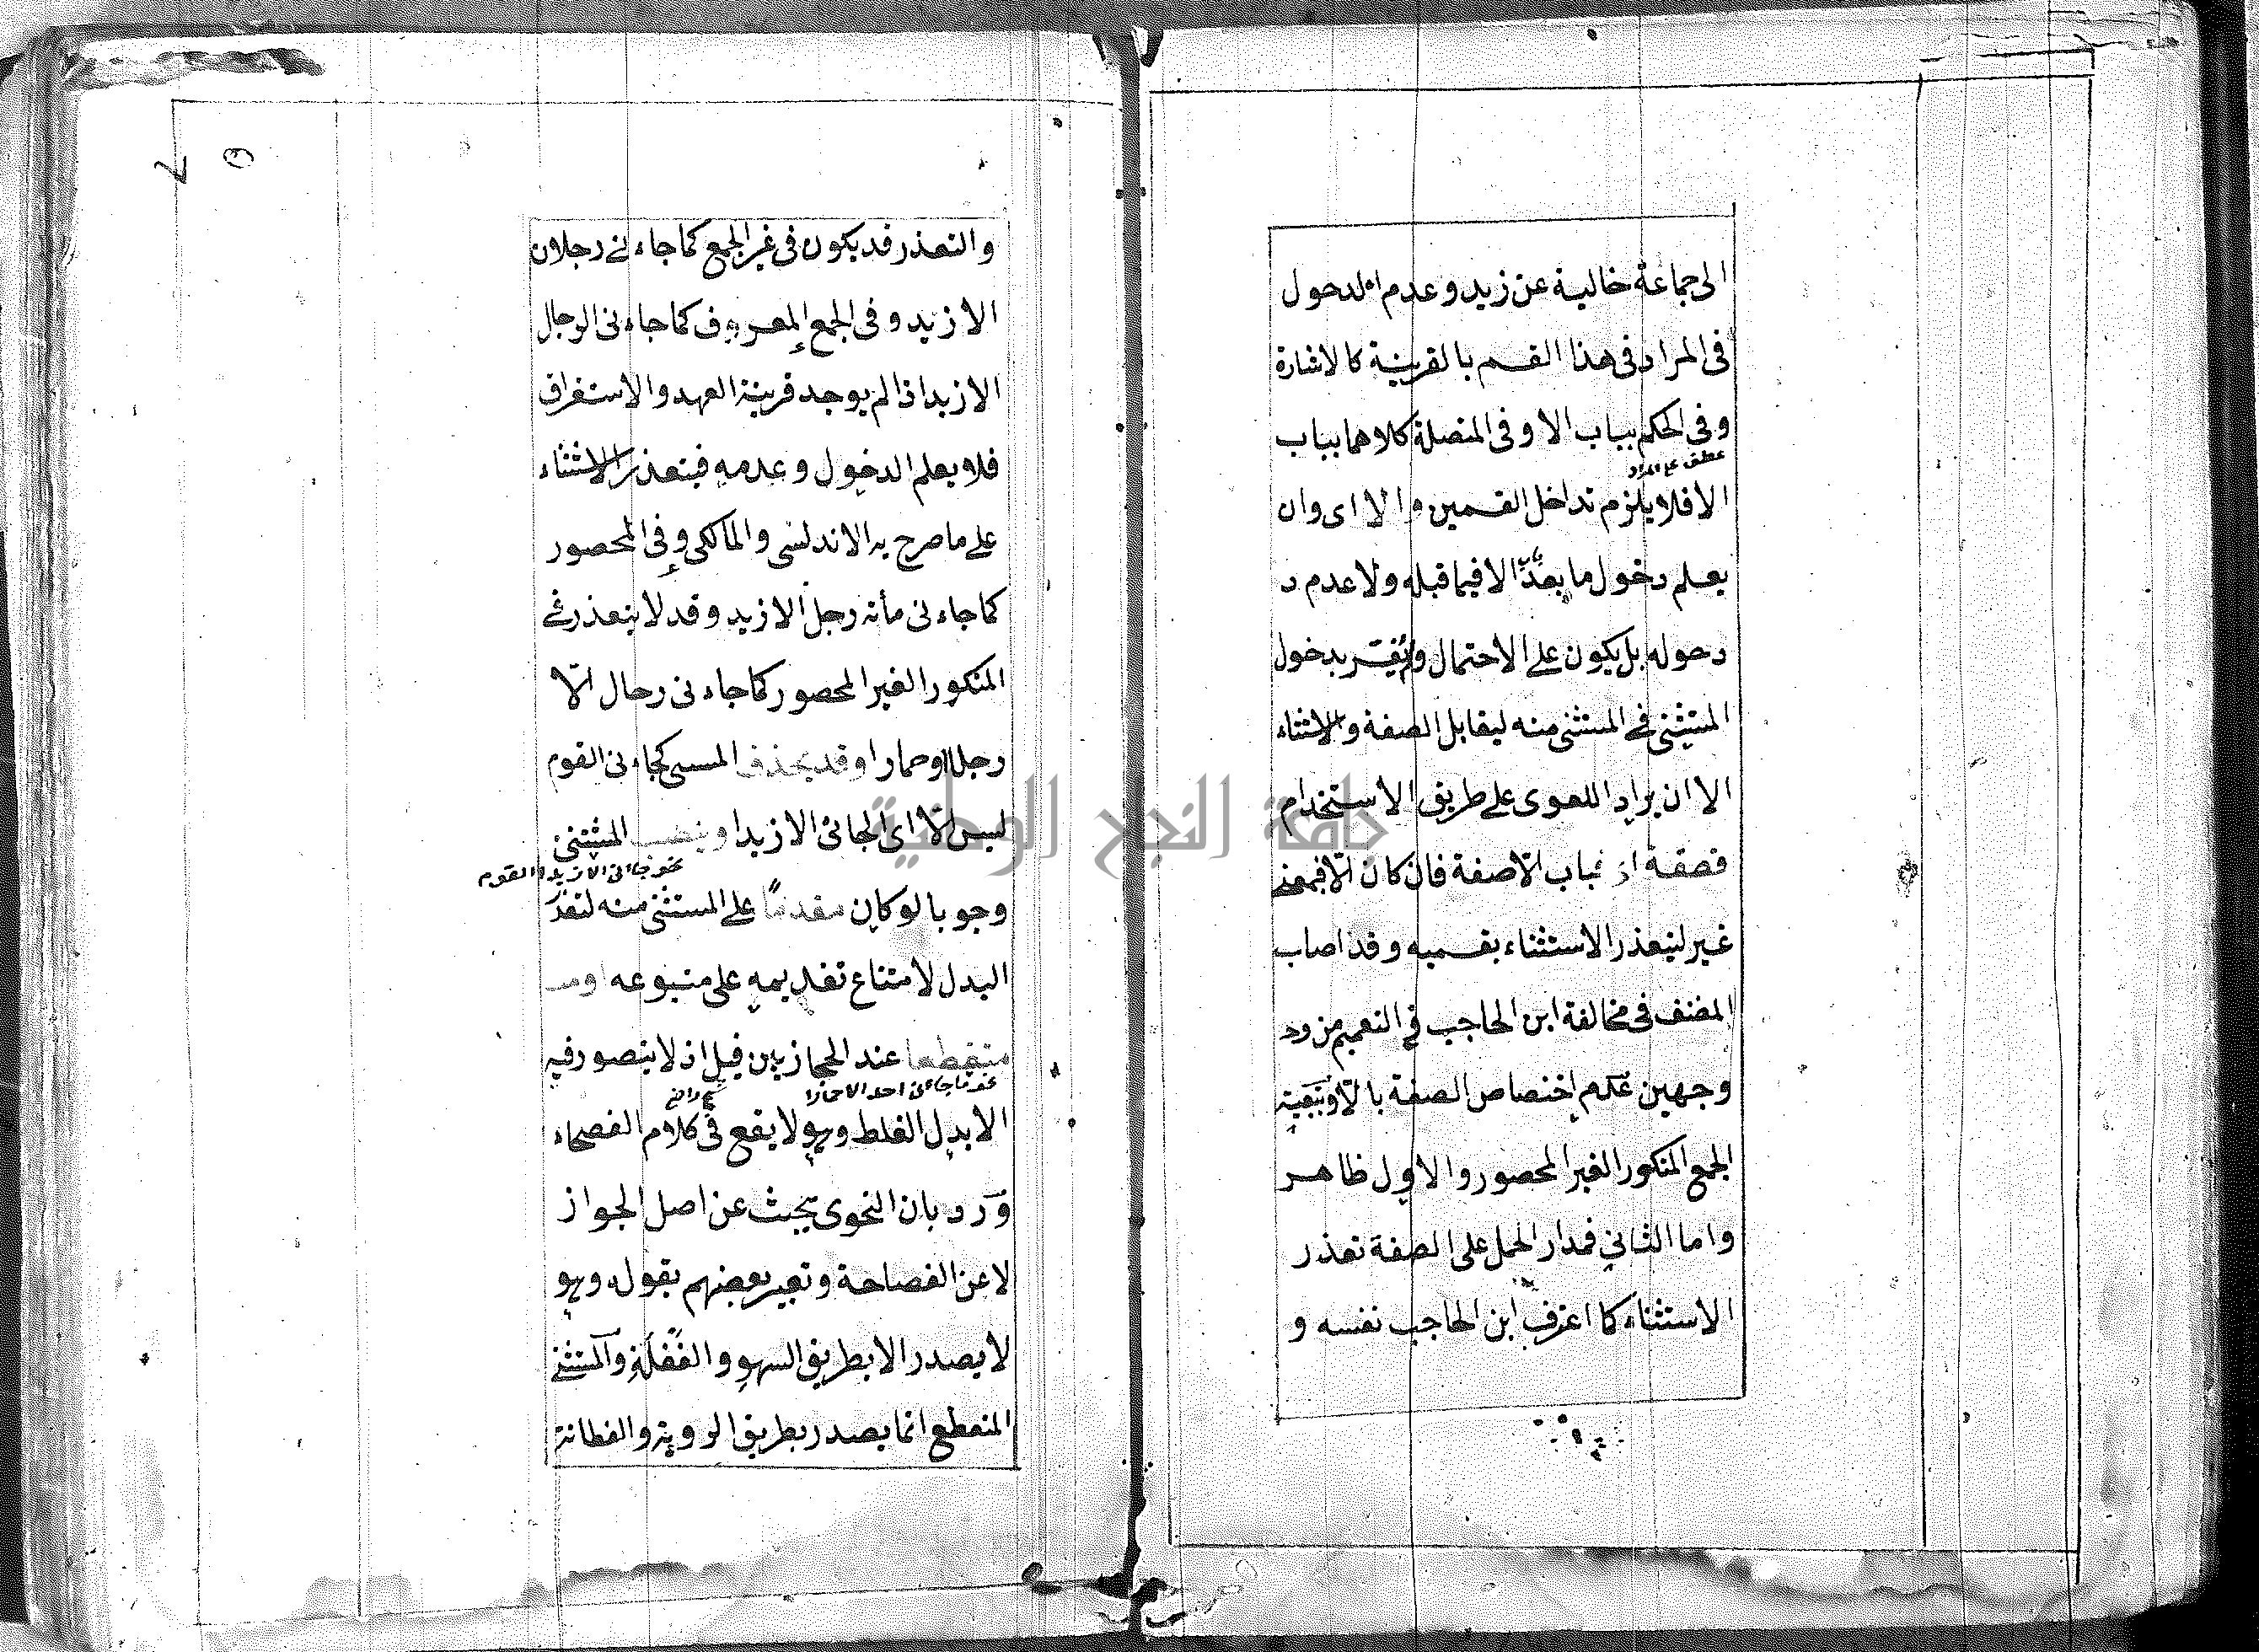 الى جماعة خالية عن زيد وعدم الدخول
فى المراد فى هذا القسم بالقرينة كالاشارة
وفى الحكم بباب الا وفى المتصلة كلاهما بباب
عطف على المراد
الا فلا يلزم تداخل القسمين والا اى وان
يعلم دخول ما بعد الا فيما قبله ولا عدم د
دحوله بل يكون على الاحتمال ولم يفسر بدخول
المستثنى فى المستثنى منه ليقابل الصفة والاستثناء
الا ان يراد اللغوى على طريق الاستخدام
فصفة اذ باب الا صفة فان كان الا فبمعنى
غير لتعذر الاستثناء بقسميه وقد اصاب
المصنف فى مخالفة ابن الحاجب فى التعميم من وجـ
وجهين عدم اختصاص الصفة بالا وتبعية
الجمع المنكور الغير المحصور والاول ظاهر
واما الثانى فمدار الحمل على الصفة تعذر
الاستثناء كما اعترف ابن الحاجب نفسه و
٧ ٥
والتعذر قد يكون فى غير الجمع كما جاءنى رجلان
الا زيد وفى الجمع المعروف كما جاءنى الرجال
الا زيد اذا لم يوجد قرينة العهد والاستغراق
فلا يعلم الدخول وعدمه فيتعذر الاستثناء
على ما صرح به الاندلسى والمالكى وفى المحصور
كما جاءنى مأته رجل الا زيد وقد لا يتعذر فى
المنكور الغير المحصور كما جاءنى رجال الّا
رجلا وحمارا وقد يحذف المسـى كجاءنى القوم
ليس الّا اى الجائى الا زيدا وينصب المستثنى
نحو ما جائنى الا زيدا القوم
وجوبا لو كان مقدمًا على المستثنى منه لتعذر
البدل لامتناع تقديمه على متبوعه او
منقطعا عند الحجازيين قيل اذ لا يتصور فيه
نحو ما جائنى احد الا حمارا
الا بدل الغلط وهو لا يقع فى كلام الفصحاء
ورد بان النحوى يبحث عن اصل الجواز
لا عن الفصاحة وتعبير بعضهم بقوله وهو
لا يصدر الا بطريق السهو والغفلة والمستثنى
المنقطع انما يصدر بطريق الروية والفطانة
جامعة النجاح الوطنية